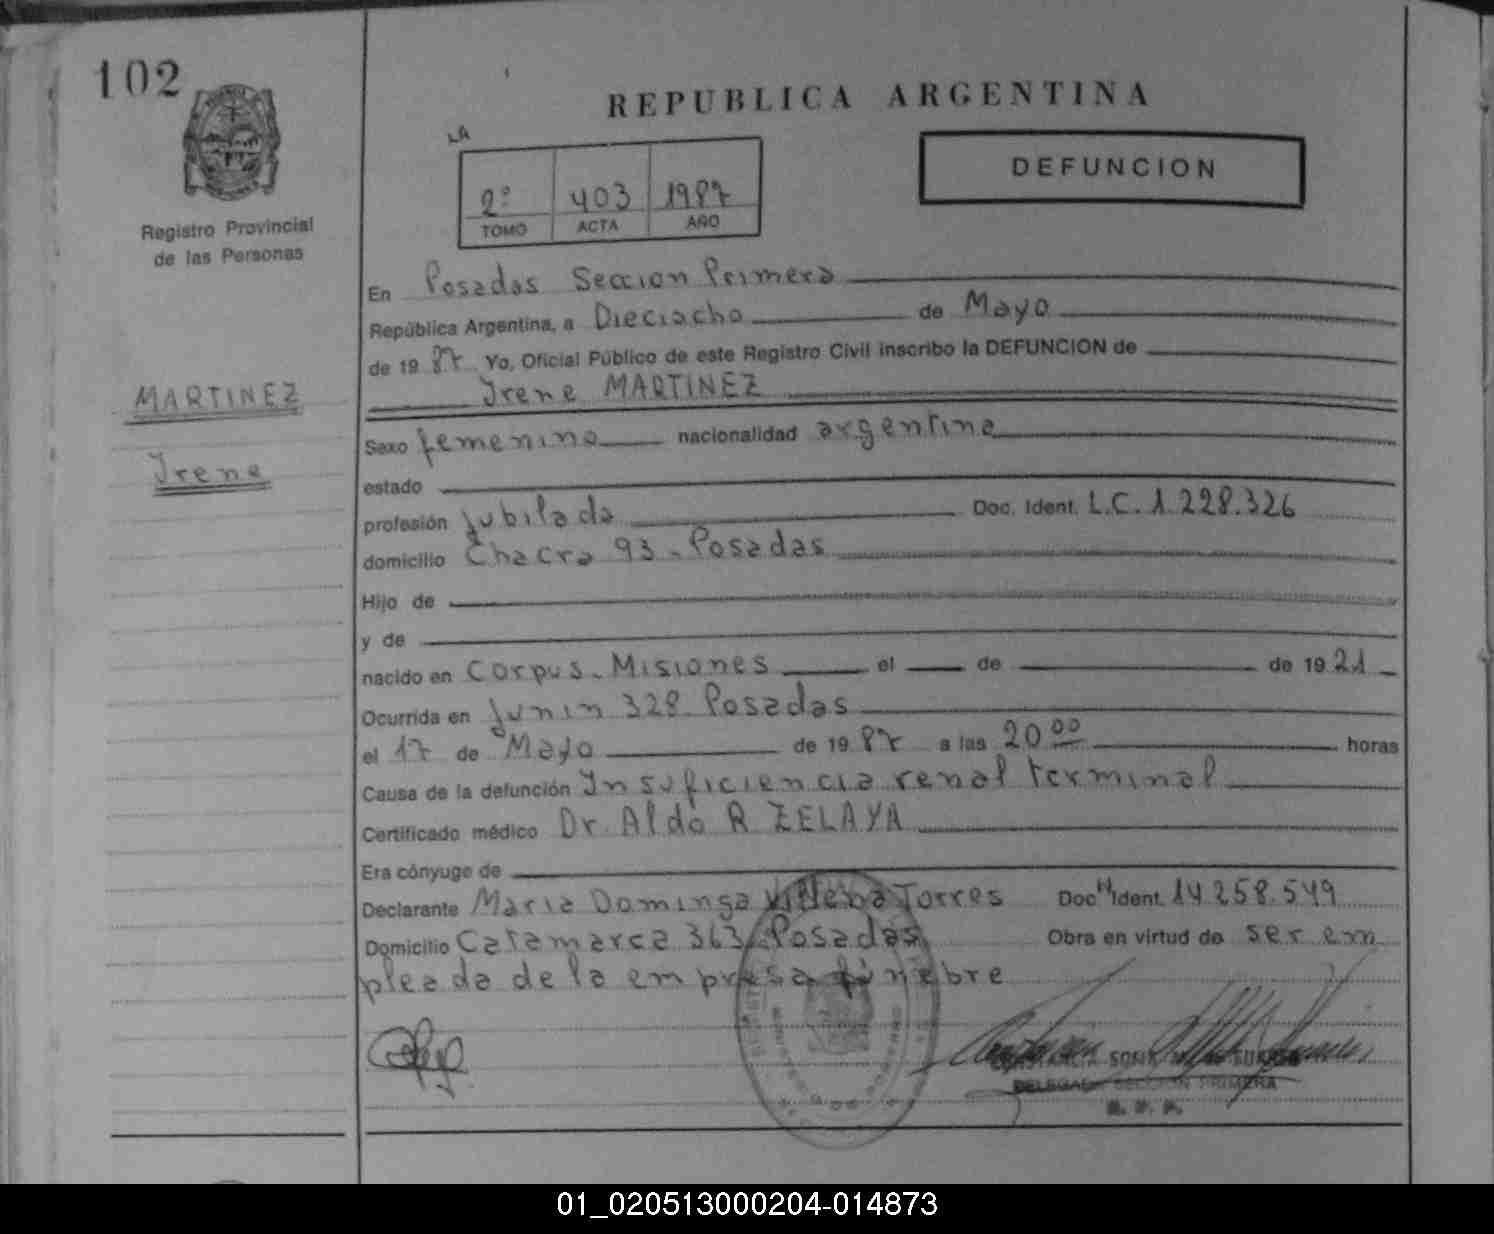 102
REPUBLICA ARGENTINA
LA
DEFUNCION
2º 403 1987
TOMO ACTA AÑO
Registro Provincial
de las Personas
En Posadas Seccion Primera
República Argentina, a Dieciocho de Mayo
de 1987 Yo, Oficial Público de este Registro Civil inscribo la DEFUNCION de
Irene MARTINEZ
MARTINEZ
Irene
Sexo femenino nacionalidad argentina
estado
profesión jubilada Doc. Ident. L.C. 1.228.326
domicilio Chacra 93 - Posadas
Hijo de
y de
nacido en Corpus - Misiones el de de 1921
Ocurrida en Junin 328 Posadas
el 17 de Mayo de 1987 a las 20 00 horas
Causa de la defunción Insuficiencia renal terminal
Certificado médico Dr. Aldo R ZELAYA
Era cónyuge de
Declarante Maria Dominga Villalba Torres Doc N Ident. 14.258.549
Domicilio Catamarca 363 Posadas Obra en virtud de ser em
pleada de la empresa fúnebre
CONSTANCIA SONIA
DELEGADA SECCION PRIMERA
R. P. P.
01_020513000204-014873